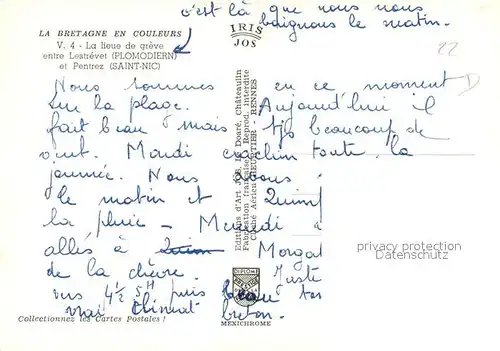 c'est là que nous nous
baignons le matin.
LA BRETAGNE EN COULEURS
IRIS
JOS
V. 4 - La lieue de grève
entre Lestrévet (PLOMODIERN)
et Pentrez (SAINT-NIC)
22
D
Nous sommes en ce moment
sur la plage. Aujourd'hui il
fait beau mais tjs beaucoup de
vent. Mardi crachin toute la
journée. Nous avons
le matin et
la pluie - Mercredi à
allés à Morgat
de la chèvre. Juste
vers 4½ 5H puis beau tps
vrai climat breton.
Editions d'Art JOS, Le Doaré, Châteaulin
Fabrication française - Reprod. interdite
Cliché Aérien HEURTIER - RENNES
privacy protection
Datenschutz
DIPLOME
Collectionnez les Cartes Postales !
MEXICHROME